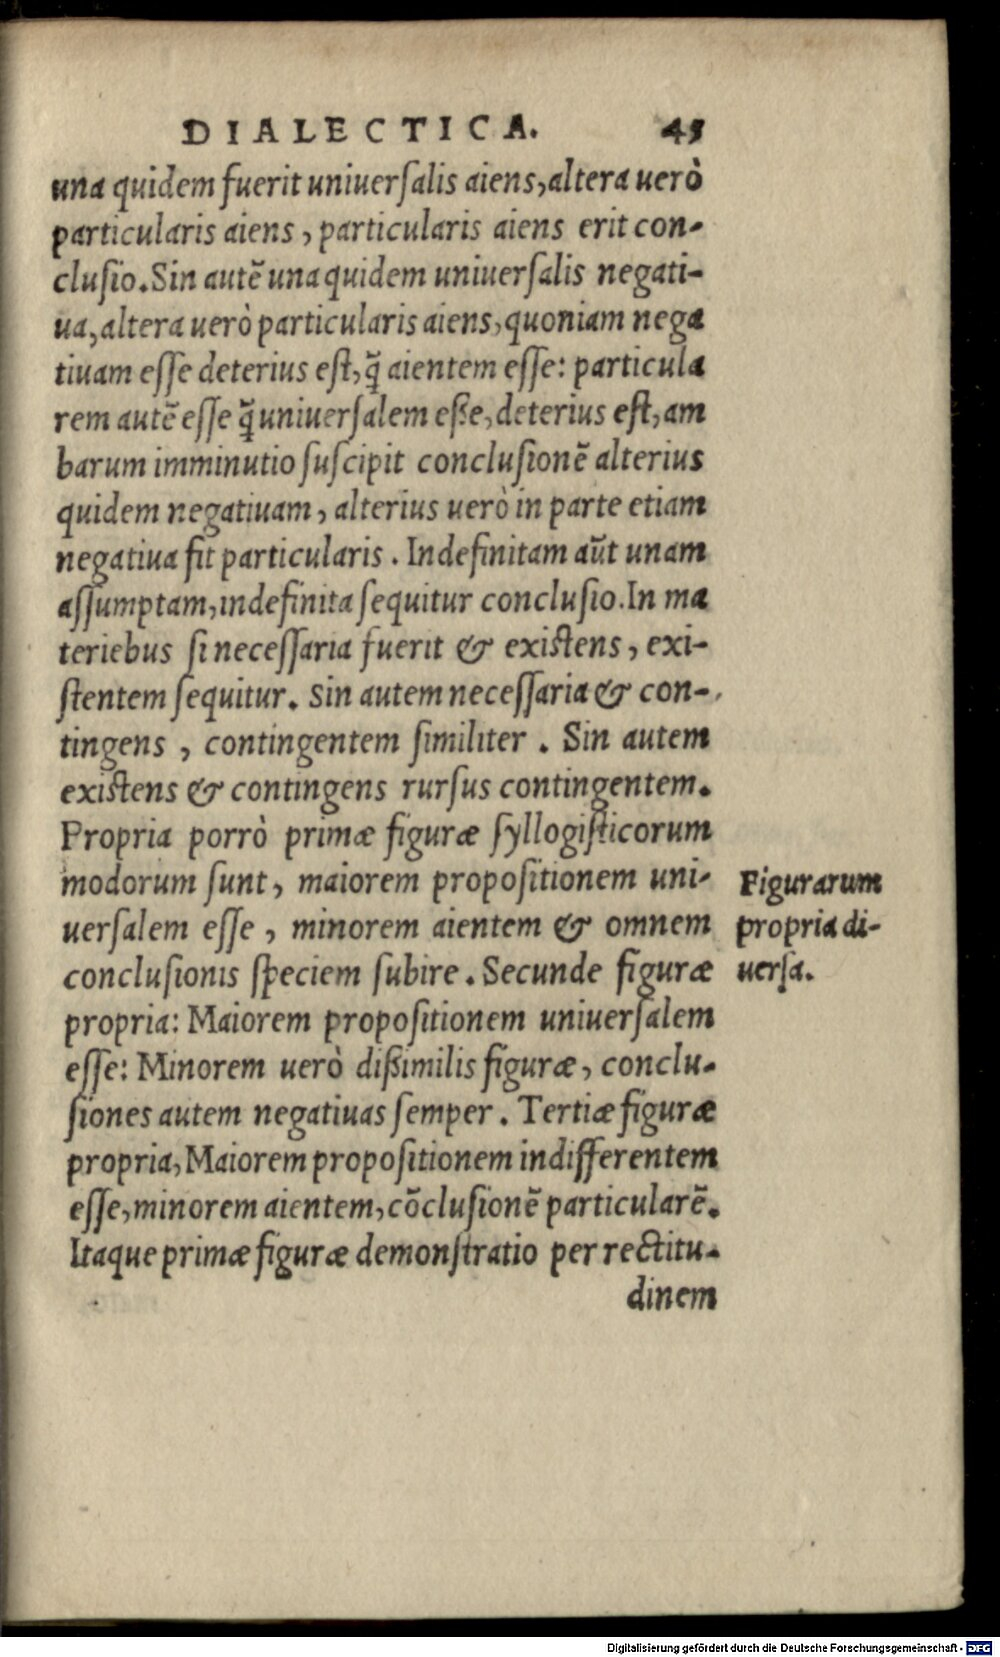 DIALECTICA. 45
una quidem fuerit uniuerſalis aiens, altera uerò
particularis aiens, particularis aiens erit con-
cluſio. Sin autē una quidem uniuerſalis negati-
ua, altera uerò particularis aiens, quoniam nega
tiuam eſſe deterius eſt, q̃ aientem eſſe: particula
rem autē eſſe q̃ uniuerſalem eße, deterius eſt, am
barum imminutio ſuſcipit concluſionē alterius
quidem negatiuam, alterius uerò in parte etiam
negatiua fit particularis. Indefinitam aūt unam
aſſumptam, indefinita ſequitur concluſio. In ma
teriebus ſi neceſſaria fuerit & exiſtens, exi-
ſtentem ſequitur. Sin autem neceſſaria & con-
tingens, contingentem ſimiliter. Sin autem
exiſtens & contingens rurſus contingentem.
Propria porrò primæ figuræ ſyllogiſticorum
modorum ſunt, maiorem propoſitionem uni-
uerſalem eſſe, minorem aientem & omnem
concluſionis ſpeciem ſubire. Secunde figuræ
propria: Maiorem propoſitionem uniuerſalem
eſſe: Minorem uerò dißimilis figuræ, conclu-
ſiones autem negatiuas ſemper. Tertiæ figuræ
propria, Maiorem propoſitionem indifferentem
eſſe, minorem aientem, cōcluſionē particularē.
Itaque primæ figuræ demonſtratio per rectitu-
dinem
Figurarum
propria di-
uerſa.
Digitalisierung gefördert durch die Deutsche Forschungsgemeinschaft - DFG